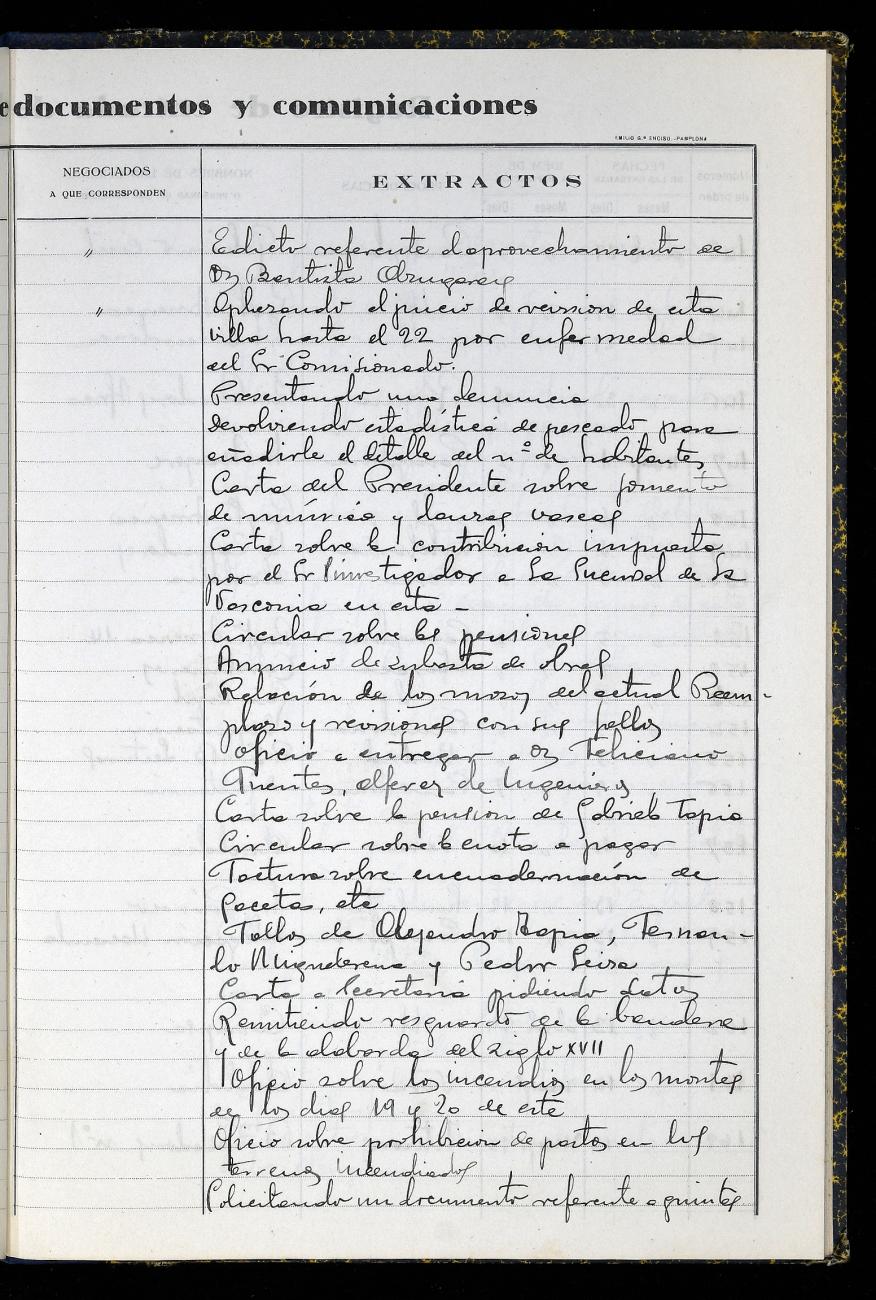 e documentos y comunicaciones
EMILIO G.ª ENCISO.-PAMPLONA
NEGOCIADOS
A QUE CORRESPONDEN
EXTRACTOS
〃 Edicto referente al aprovechamiento de
Dn Bautista
〃 Aplazando el juicio de revision de esta
villa hasta el 22 por enfermedad
del Sr Comisionado.
Presentando una denuncia
Devolviendo estadística de pescado para
añadirle el detalle del nº de habitantes
Carta del Presidente sobre fomento
de música y danzas vascas
Carta sobre la contribucion impuesta
por el Sr Investigador a la Sucursal de La
Vasconia en esta -
Circular sobre las pensiones
Anuncio de subasta de obras
Relación de los mozos del actual Reem-
plazo y revisiones con sus fallos
Oficio a entregar a Dn Feliciano
Fuentes, alferez de Ingenieros
Carta sobre la pension de Gabriela Tapia
Circular sobre la cuota a pagar
Factura sobre encuadernación de
Gacetas, etc
Fallos de Alejandro Tapia, Fernan-
do Miguderena y Pedro Leiza
Carta a Secretaria pidiendo datos
Remitiendo resguardo de la bandera
y de la alabarda del siglo XVII
Oficio sobre los incendios en los montes
de los dias 19 y 20 de este
Oficio sobre prohibicion de pastos en los
terrenos incendiados
Solicitando un documento referente a quintas